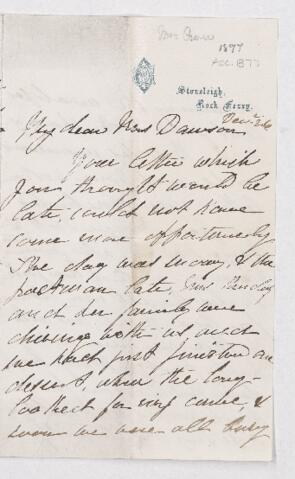 Mrs Crow
1877
Acc. 1877
Stoneleigh,
Rock Ferry.
Decr 26
My dear Mrs Dawson
Your letter which
you thought would be
late, could not have
come more opportunely
The day was snowy, & the
postman late, Mrs
and her family were
dining with us, and
we had just finished our
dessert, when the long-
looked for ring came, &
soon we were all busy